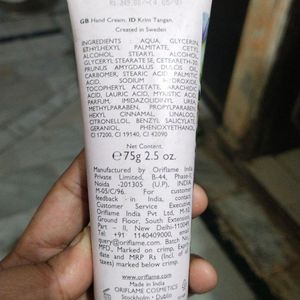 GB Hand Cream. ID Krim Tangan.
Created in Sweden
INGREDIENTS : AQUA, GLYCERIN,
ETHYLHEXYL PALMITATE, CETYL
ALCOHOL, STEARYL ALCOHOL,
GLYCERYL STEARATE SE, CETEARETH-20,
PRUNUS AMYGDALUS DULCIS OIL,
CARBOMER, STEARIC ACID PALMITIC
ACID, SODIUM HYDROXIDE,
TOCOPHERYL ACETATE, ARACHIDIC
ACID, LAURIC ACID, MYRISTIC ACID,
PARFUM, IMIDAZOLIDINYL UREA,
METHYLPARABEN, PROPYLPARABEN,
HEXYL CINNAMAL, LINALOOL,
CITRONELLOL, BENZYL SALICYLATE,
GERANIOL, PHENOXYETHANOL,
CI 17200, CI 19140, CI 42090
Net Content.
75g 2.5 oz.
Manufactured by Oriflame India
Private Limited, B-44, Phase-II,
Noida -201305 (U.P), INDIA.
M-05/C/96. For customer
feedback in India, contact
Customer Service Executive,
Oriflame India Pvt Ltd., M-10,
Ground Floor, South Extension
Part – II, New Delhi-110049,
Tel +91 1140409000,
query@oriflame.com. Batch No.
MFD. Marked on crimp. Expiry
date and MRP Rs (Incl. of all
taxes) marked below crimp.
www.oriflame.com
Made in India
© ORIFLAME COSMETICS
Stockholm • Dublin